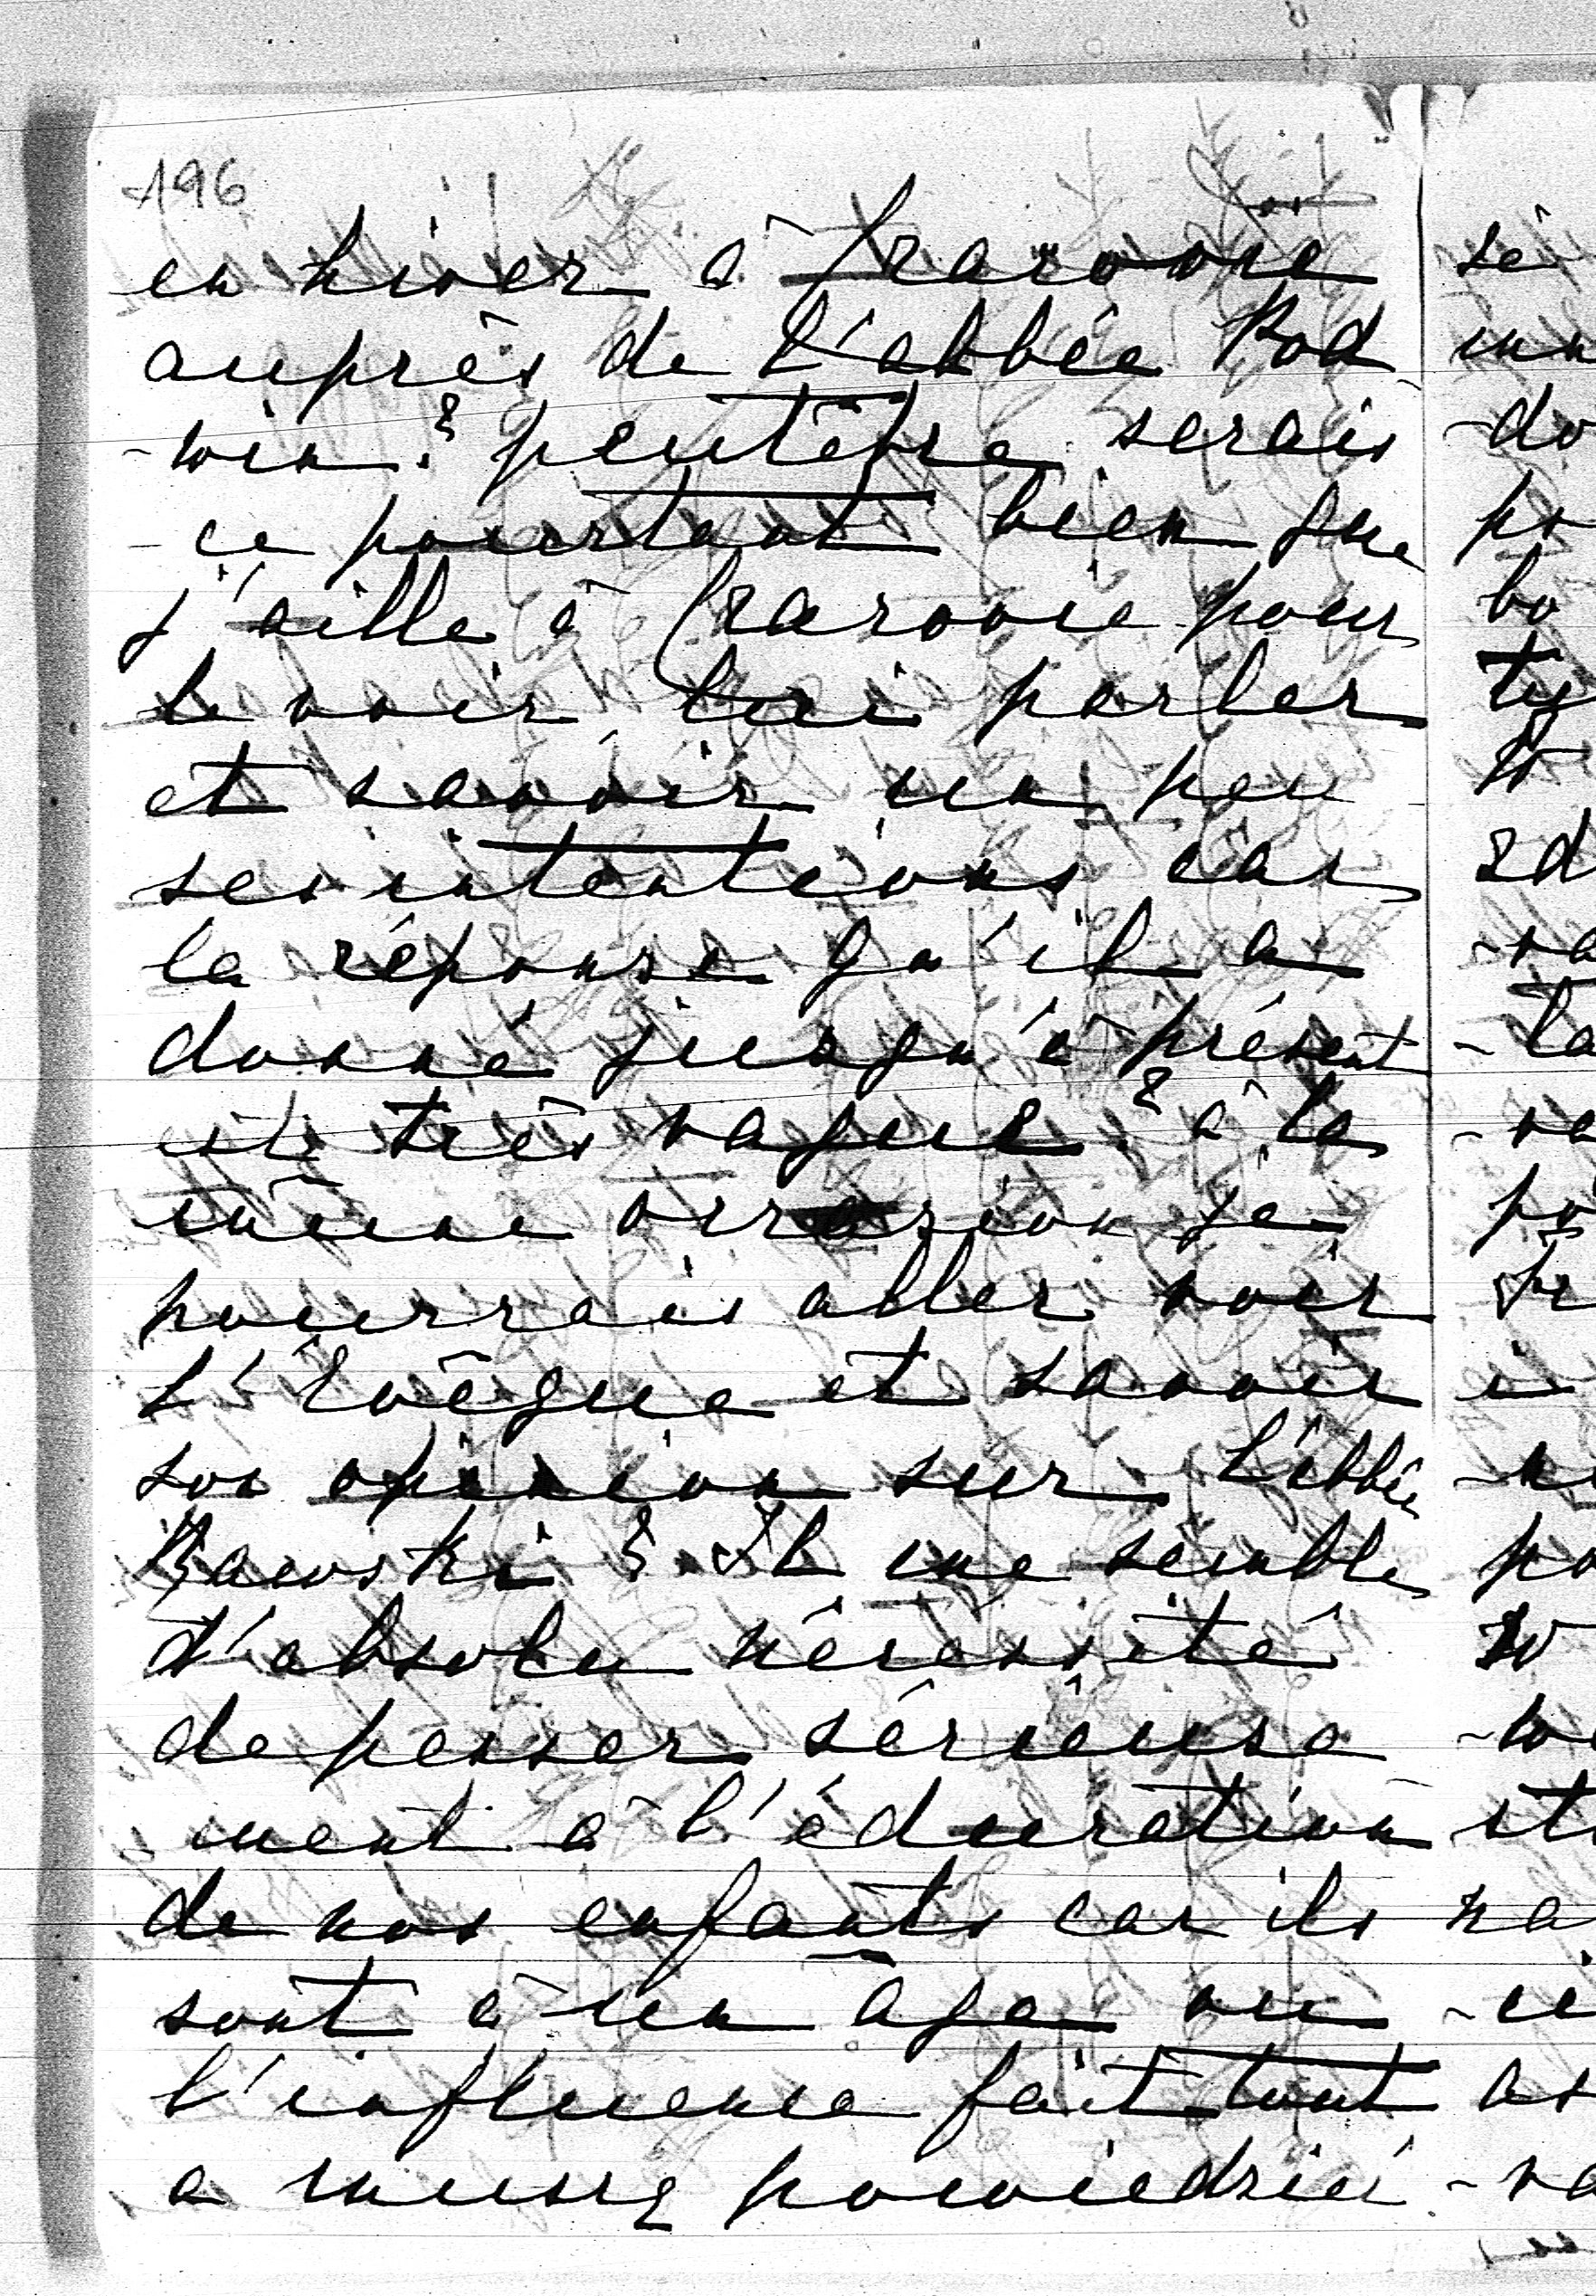 196
en hiver à Cracovie
auprès de l'abbée Bad
-win? peutêtre serais
-ce pourtant bien que
j'aille à Cracovie pour
le voir, lui parler
et savoir un peu
ses intentions car
la réponse qu'il a
donné jusqu'à présent
est très vague? à la
même occasion je
pourrais aller voir
l'Evêque et savoir
son opinion sur l'abbée
Bawski? Il me semble
d'absolu nécessité
de penser sérieuse
ment à l'éducation
de nos enfants car ils
sont à un âge ou
l'influence fait tout
a muszę powiedzieć